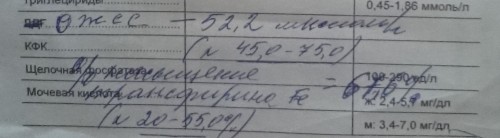 Триглицериды 0,45-1,86 ммоль/л
ОЖСС - 52,2 мкмоль/л
КФК (N 45,0-75,0)
Щелочная фосфатаза 100-290 ед/л
% насыщение
Мочевая кислота ж: 2,4-5,7 мг/дл
трансферрина Fe =
(N 20-55,0%) м: 3,4-7,0 мг/дл